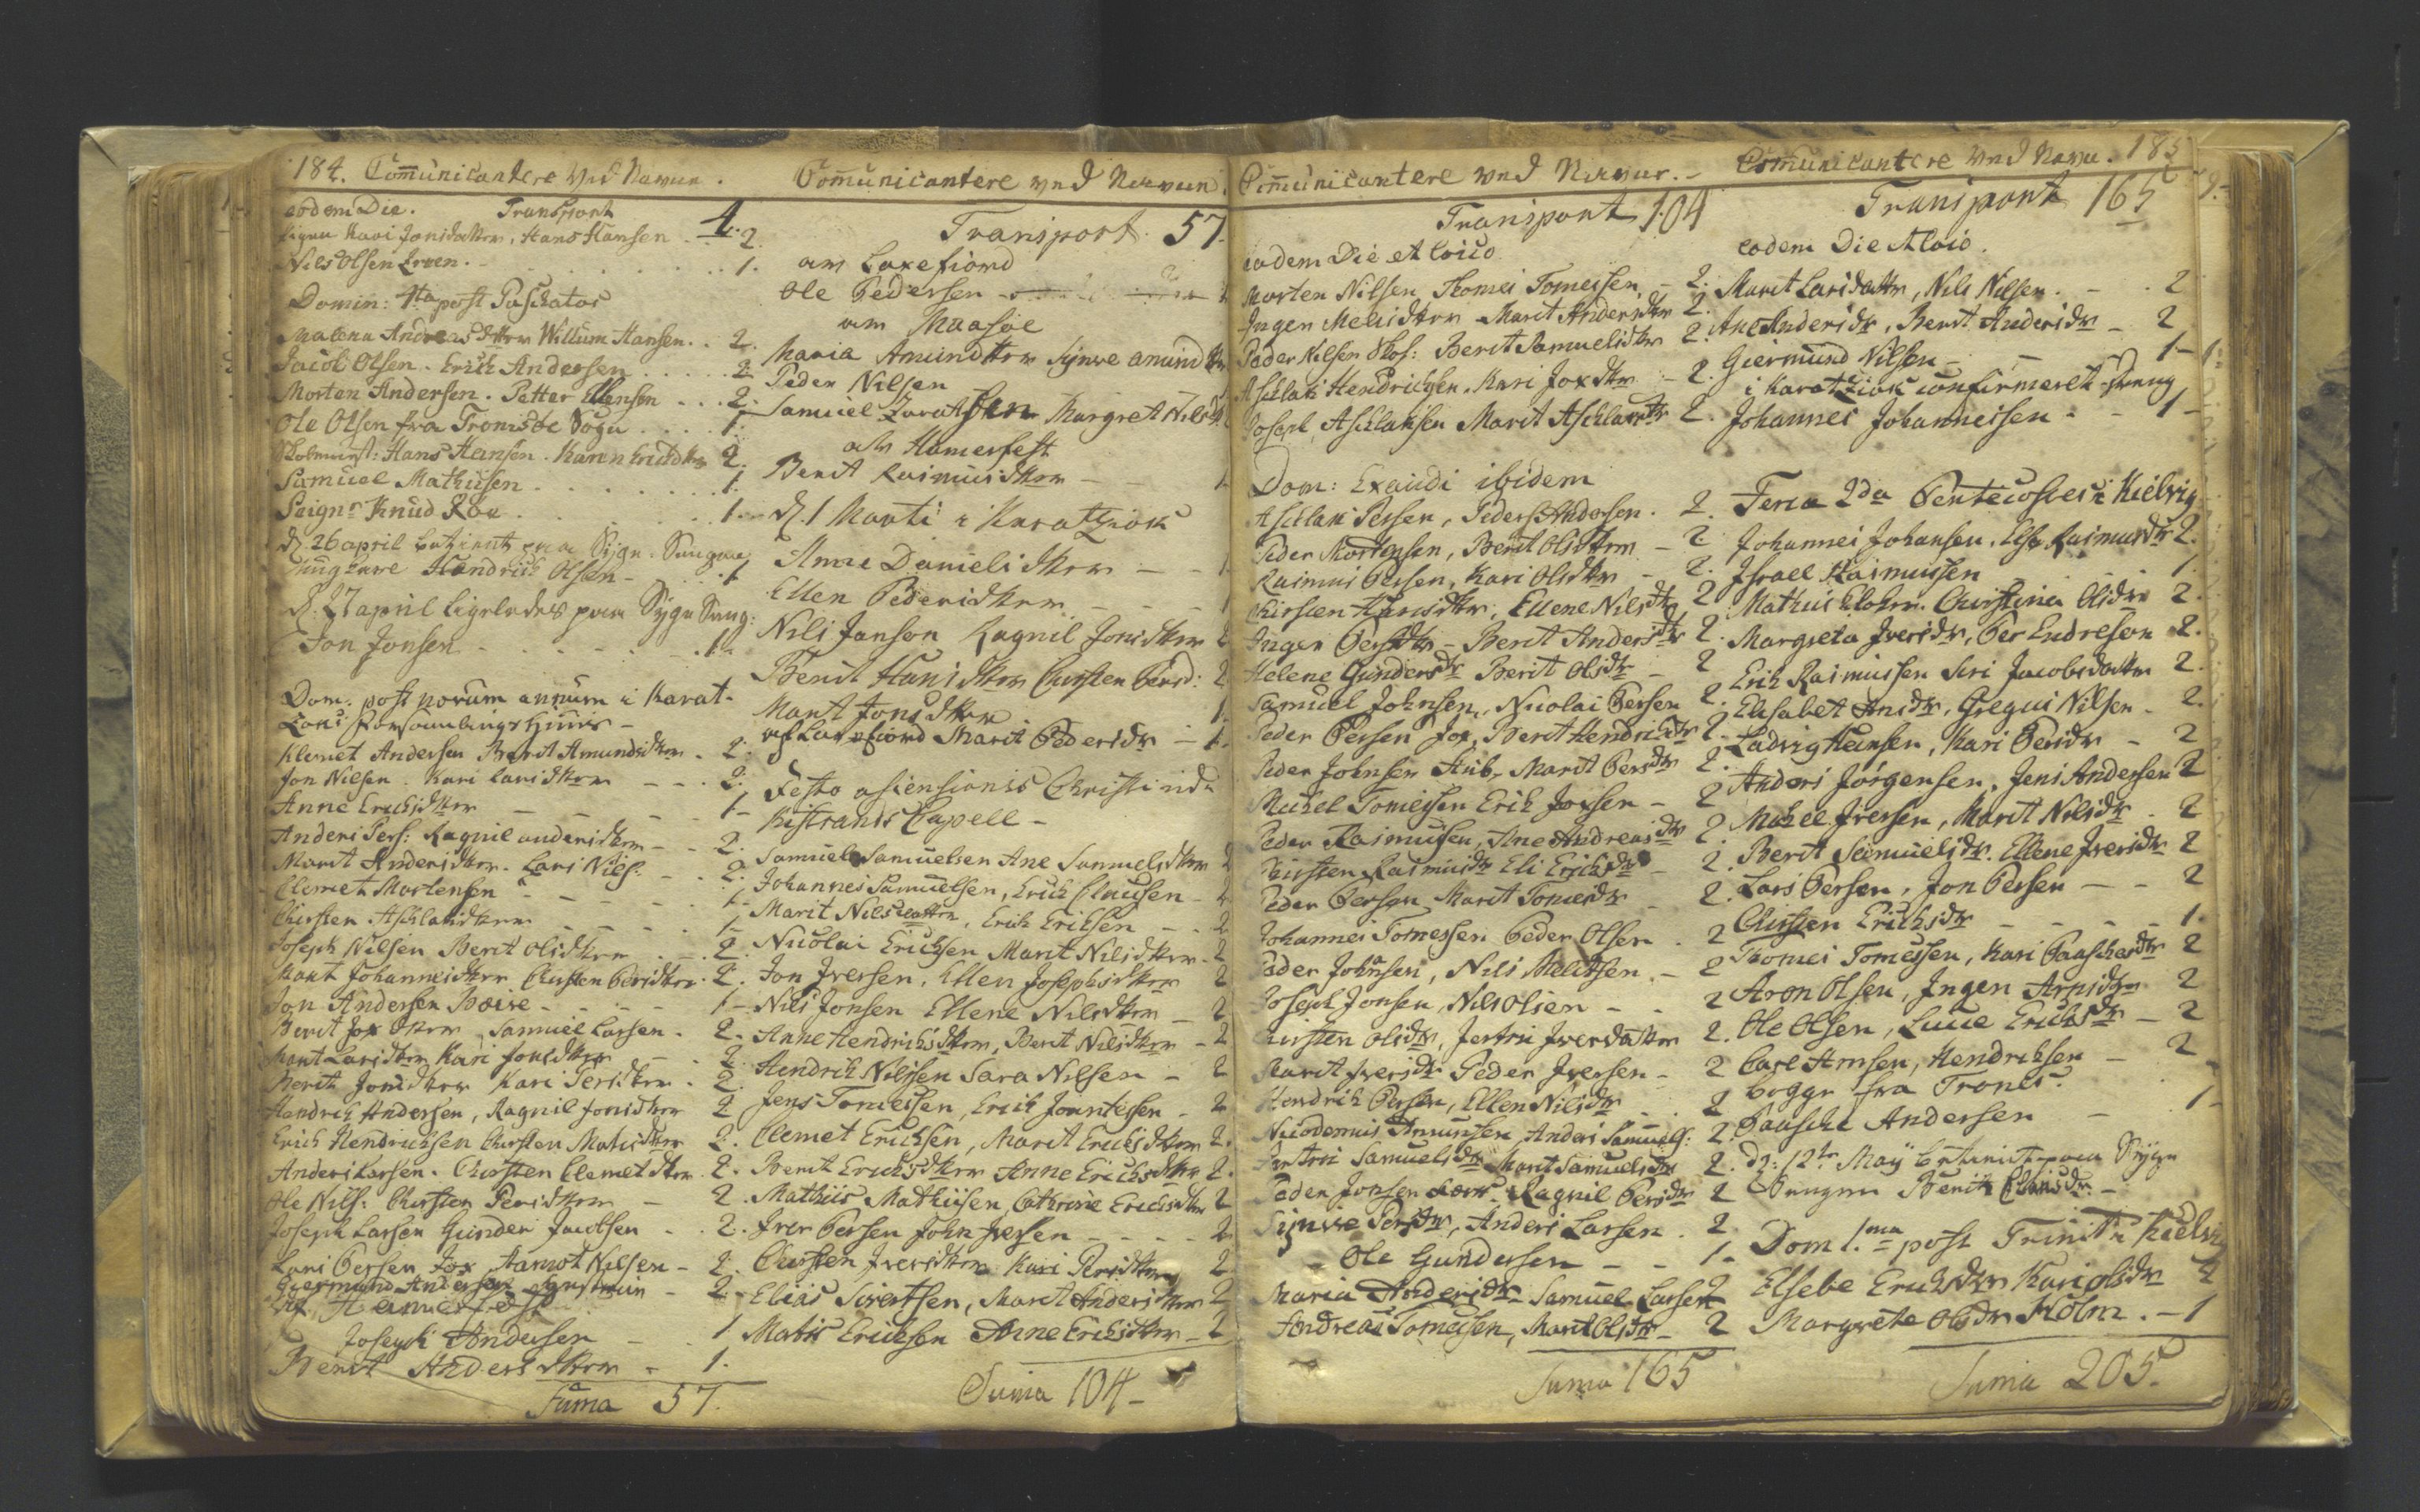 184. Com̄unicantere ved Navne.
eodem Die. Transport 4.
Kari Jonsdatter, Hans Hansen 2.
Nils Olsen 1.
Domin: 4ta post Paschatos
Malena Andreasdtter Willum Hansen 2.
Jacob Olsen. Erich Andersen 2
Morten Andersen. Petter Ellensen 2.
Ole Olsen fra Tromsöe Sogn 1.
Hans Hansen. Karen Erichdtter 2.
Samuel Mathisen 1.
Seignr Knud 1.
d. 26 april betient paa Syge Sengen
Hendrich Olsen 1
d. 27 april ligeledes paa Syge Seng:
Jon Jonsen 1.
Dom. post novum annum i Karat-
Zoks Forsamlings Huus
Klemet Andersen Berit Amundsdtter 2.
Jon Nilsen. Kari Larsdtter 2.
Anne Erichsdtter 1
Anders Pers: Ragnil andersdtter 2.
Marit Andersdtter. Lars Nils: 2.
Clemet Mortensen 1
Chirsten Aschlaksdtter 1
Joseph Nilsen Berit Olsdtter 2.
Marit Johannesdtter Chirsten Persdtter 2.
Jon Andersen 1
Berit Joxdtter Samuel Larsen 2.
Marit Larsdtter Kari Jonsdtter 2.
Berit Jonsdtter Kari Persdtter 2.
Hendrich Andersen, Ragnil Jonsdtter 2
Erich Hendrichsen Chirsten Matisdtter 2.
Anders Larsen. Chirsten Clemetdtter 2.
Ole Nils: Chirsten Persdtter 2.
Joseph Larsen Gunder Jacobsen 2.
Lars Persen Jox, Aamot Nilsen 2.
Giermund Andersen 2.
af Hamerfest
Joseph Andersen 1
Berit Andersdtter 1.
Suma 57.
Com̄unicantere ved Navun
Transport 57.
am Laxefiord
Ole Pedersen
am Maasöe
Maria Amunddtter Synwe amunddtter
Peder Nilsen
Samuel Margret Nilsd
als Hamerfest
Berit Rasmusdtter 1
d. 1 Marti i Karatziok
Anne Danielsdtter 1
Ellen Pedersdtter 1
Nils Janson Ragnil Jonsdtter 2
Berit Hansdtter Chirsten Persd: 2
Marit Jonsdtter 1.
af Laxefiord Marit Pedersdr 1.
Festo asiensionis Christi
Kistrands Capell
Samuel Samuelsen Ane Samuelsdtter 2
Johannes Samuelsen, Erich Clausen 2
Marit Nilsdatter, Erich Erichsen 2
Nicolai Erichsen Marit Nilsdtter 2
Jon Iversen, Ellen Josephsdtter 2
Nils Jonsen Ellene Nilsdtter 2
Anne Hendrichsdtter, Berit Nilsdtter 2
Hendrich Nilssen Sara Nilsen 2
Jens Tomessen, Erich Jonntessen 2
Clemet Erichsen, Marit Erichsdtter 2.
Berit Erichsdtter Anne Erichsdtter 2.
Mathiis Mathiisen, Cathrine Erichsdtter 2
Iver Persen John Iversen 2.
Chirsten Iversdtter Kari Persdtter 2
Elias Sivertsen, Marit Andersdtter 2
Matis Erichsen Anne Erichsdtter 2
Suma 104
Com̄unicantere ved Navur.
Transport 104
eodem Die et loico
Morten Nilsen Thomes Tomessen 2.
Inger Melisdtter Marit Andersdtter 2.
Peder Nilsen Skos: Berit Samuelsdtter 2.
Aschlak Hendrichsen. Kari Joxdtter 2.
Joseph Aschlaksen Marit Aschlaksdtr 2.
Dom: Exaudi ibidem
Aschlak Persen, Peder Andersen 2.
Peder Mortensen, Berit Olsdtter 2
Rasmus Persen, Kari Olsdtter 2.
Chirsten Hansdtter, Ellene Nilsdtr 2
Inger Persdtr Berit Andersdtr 2.
Helene Gundersdtr Berit Olsdtr 2
Samuel Johnsen, Nicolai Persen 2.
Peder Persen Jox, Berit Hendrichsdtr 2.
Peder Johnsen Aub, Marit Persdtr 2.
Michel Tomessen Erich Joxsen 2
Peder Rasmusen, Ane Andreasdtr 2
Chirsten Rasmusdtr Eli Erichsdtr 2.
Peder Persen Marit Tomesdtr 2.
Johannes Tomessen Peder Olsen 2
Peder Johansen, Nils Nilssen 2
Joseph Jonsen, Nils Olsen 2
Chirsten Olsdtr, Iversdatter 2.
Marit Iversdtr Peder Iversen 2
Hendrich Persen, Ellen Nilsdtr 2
Nicodemus Amunsen, Anders Samuels: 2.
Samuelsdtr Marit Samuelsdtr 2.
Peder Jonsen Ragnil Persdtr 2
Synwe Persdtr, Anders Larsen 2.
Ole Gundersen 1.
Maria Andersdtr Samuel Larsen 2
Andreas Tomessen, Marit Olsdtr 2
Suma 165
Com̄unicantere ved Navn. 185
Transport 165
eodem Die et loio.
Marit Larsdatter, Nils Nilsen 2
Ane Andersdtr, Berit Andersdtr 2
Giermund Nilsen 1
i Karatziok confirmeret
Johannes Johannessen 1
Feria 2da Pentecostes i Kielvig
Johannes Johansen, Else Rasmusdtr 2.
Israel Rasmussen 1.
Mathis Christina Olsdtr 2.
Margreta Iversdtr, Per Endresen 2.
Erich Rasmussen Siri Jacobsdatter 2.
Elisabet Ansdtr, Gregus Nilsen 2.
Ladvig Hansen, Kari Persdtr 2
Anders Jörgensen, Jens Andersen 2
Michel Iversen, Marit Nilsdtr 2
Berit Samuelsdtr. Ellene Iversdtr 2
Lars Persen, Jon Persen 2
Chirsten Erichsdtr 1.
Thomes Tomessen, Kari Paaschesdtr 2
Aron Olsen, Inger Arnsdtr 2
Ole Olsen, Lucie Erichsdtr 2
Carl Arnsen, Hendrichsen 2
begge fra Tromsö.
Paasche Andersen 1
d: 12te Maij betient paa Syge
Sengen Berit
Dom 1.ma post Trinit: i Kielvig
Elsebe Erichsdtr Kari Olsdtr 2
Margrete Olsdtr Holm 1
Suma 205.